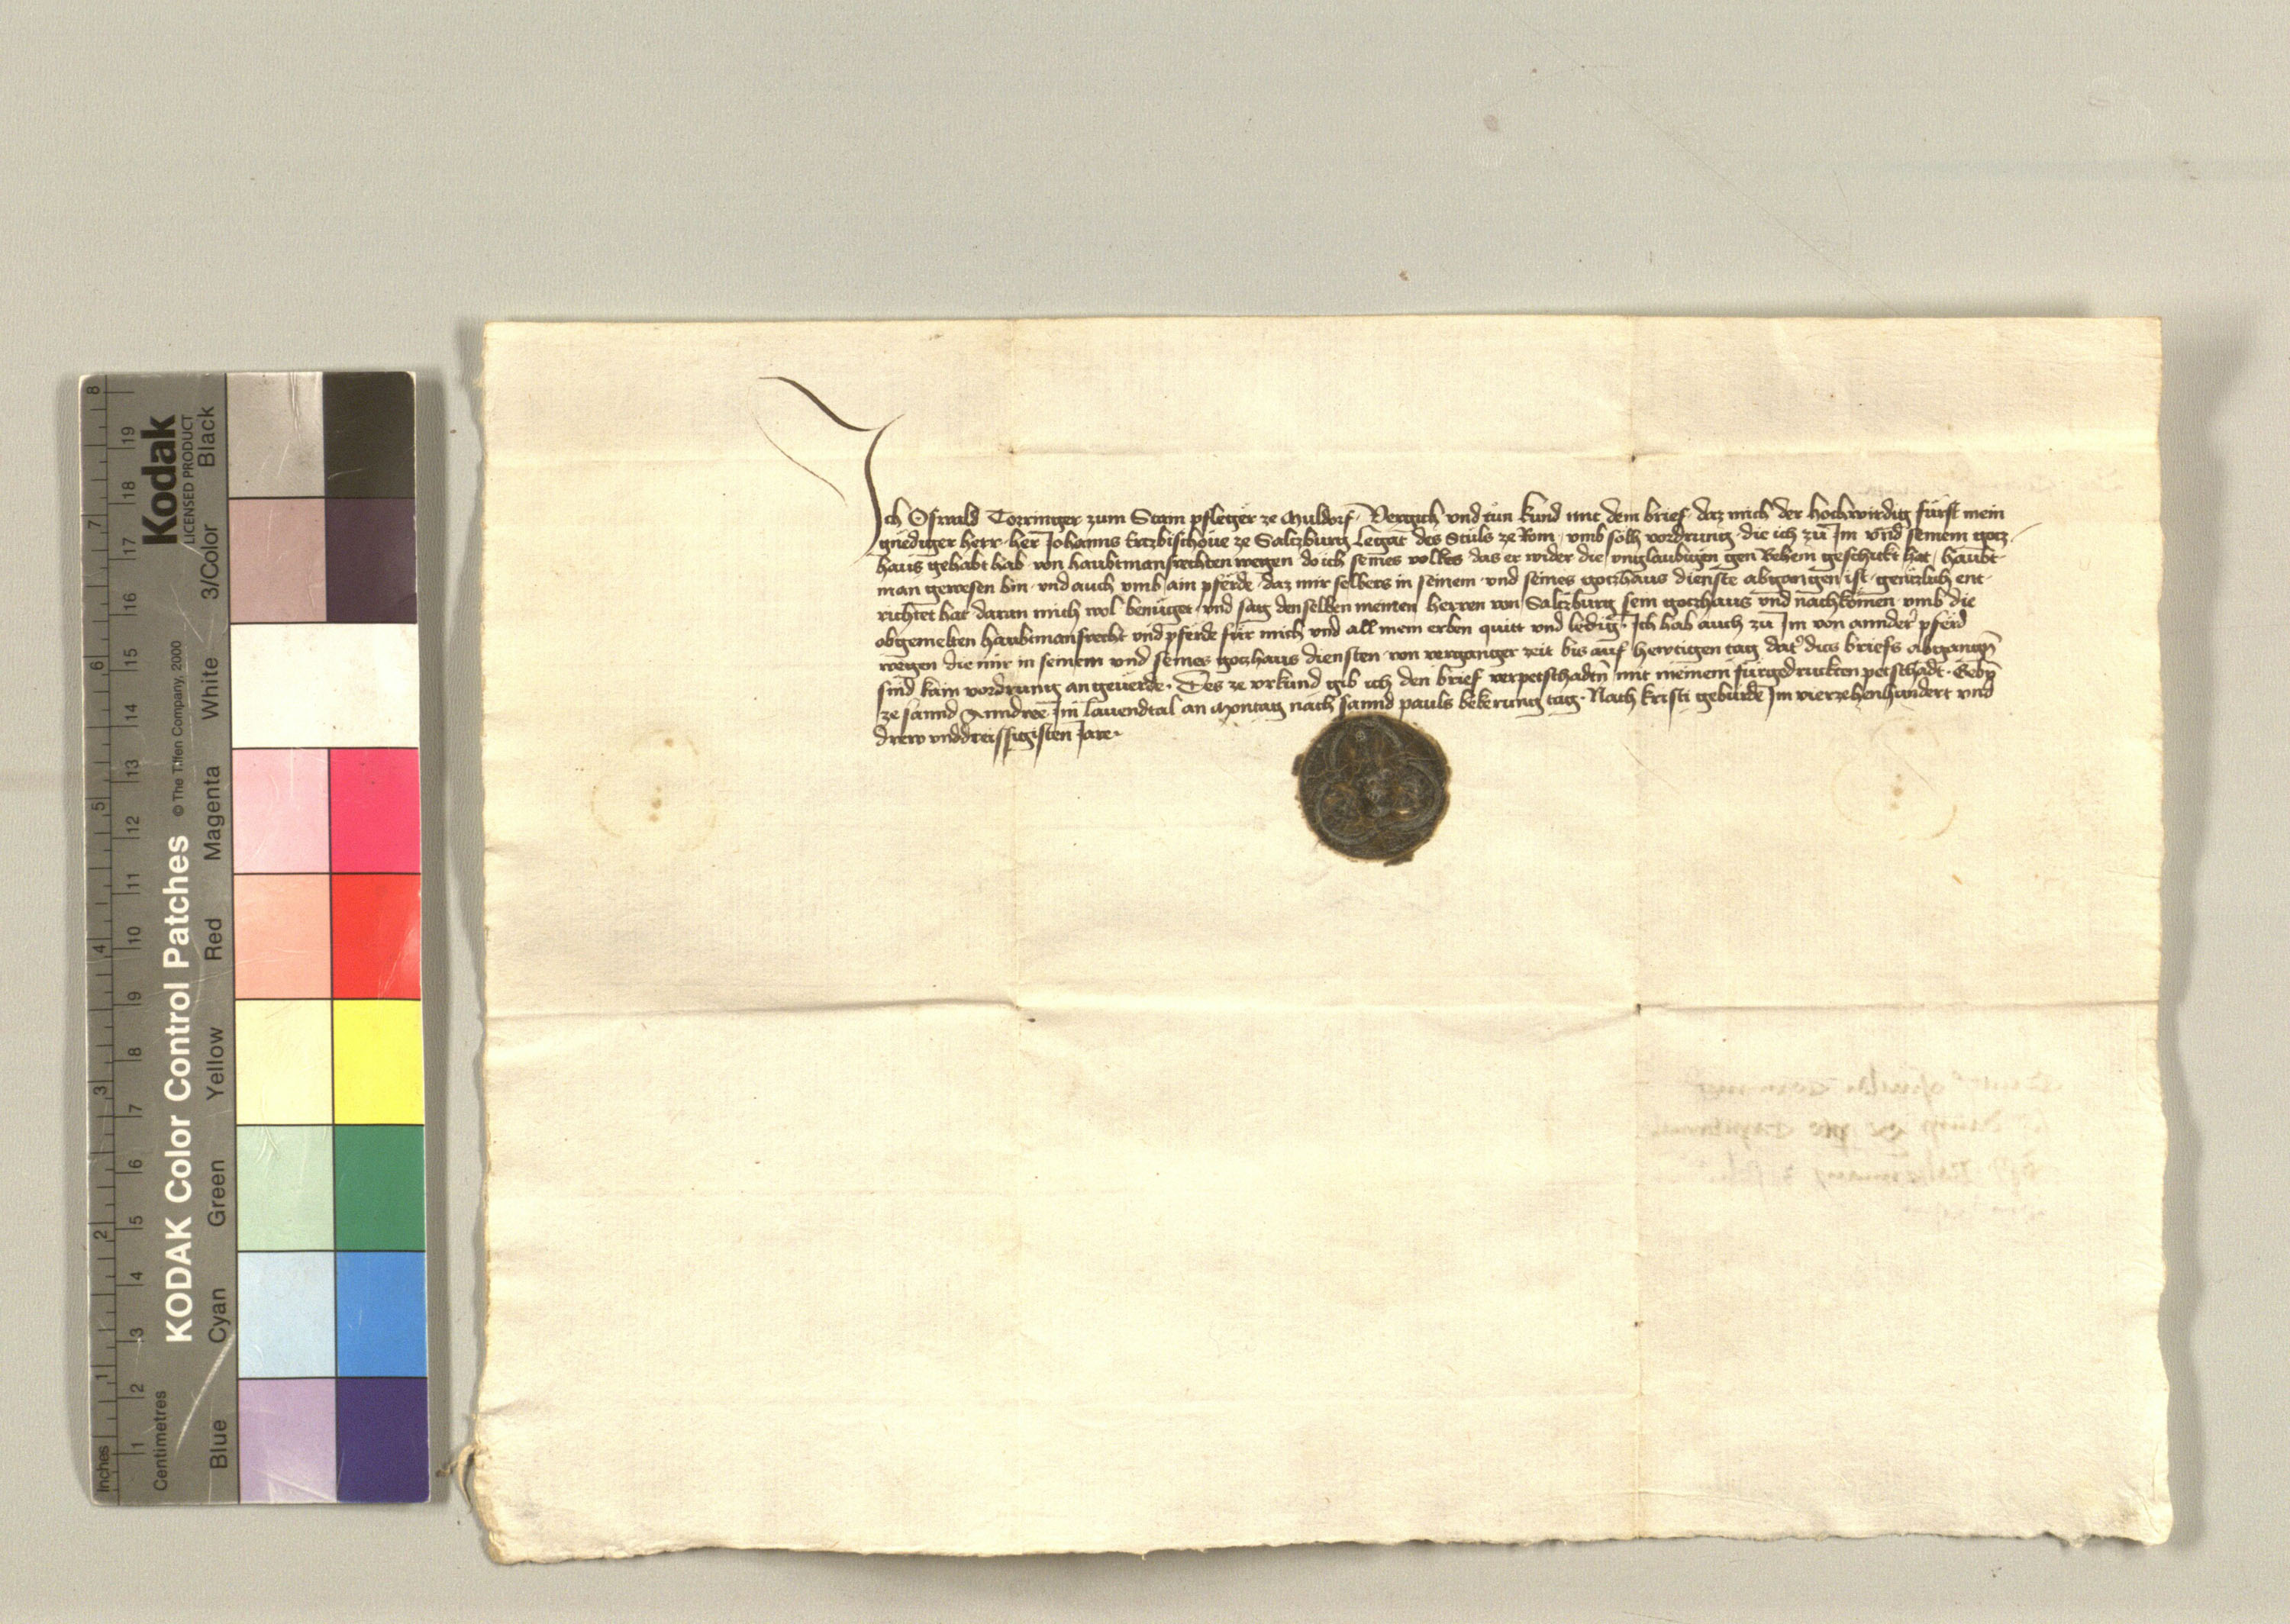 Ich Oswald Torringer zum Stain pfleger ze Muldorf. Vergich und tun kund mit dem brief daz mich der hochwirdig fürst mein
gnediger herr her Johanns Ertzbischoue ze Saltzburg Legat des Stuls ze Rom, vmb sölh vordrung die ich zu Im vnd seinem gotz-
haus gehabt hab von haubtmansrechten wegen do ich seines volkes das er wider die vnglaubigen gen Behem geschikt hat, haubt-
man gewesen bin. vnd auch vmb ain pferde daz mir selbers in seinem vnd seines gotzhaus dienste abgangen ist. genczlich ent-
richtet hat daran mich wol benüget vnd sag denselben meinen herren von Saltzburg sein gotzhaus vnd nachkomen vmb die
obgemelten haubtmansrecht vnd pferde für mich vnd all mein erben quitt vnd ledig. Ich hab auch zu Im von annder pferd
wegen die mir in seinem vnd seines gotzhaus diensten von verganger zeit bis auf hewtigen tag dat dits briefs abgangn
sind kain vordrung an geuerde. Des ze vrkund gib ich den brief verpetschadtn mit meinem fürgedruckten petschadt. Gebn
ze sannd Anndree Im lauendtal an Montag nach sannd pauls bekerung tag. Nach kristi geburde Im vierzehenhundert vnd
drew vnddreissigisten Jare.
KODAK Color Control Patches
© The Tiffen Company, 2000
Kodak
LICENSED PRODUCT
Blue Cyan Green Yellow Red Magenta White 3/Color Black
Centimetres
1 2 3 4 5 6 7 8 9 10 11 12 13 14 15 16 17 18 19
Inches
1 2 3 4 5 6 7 8